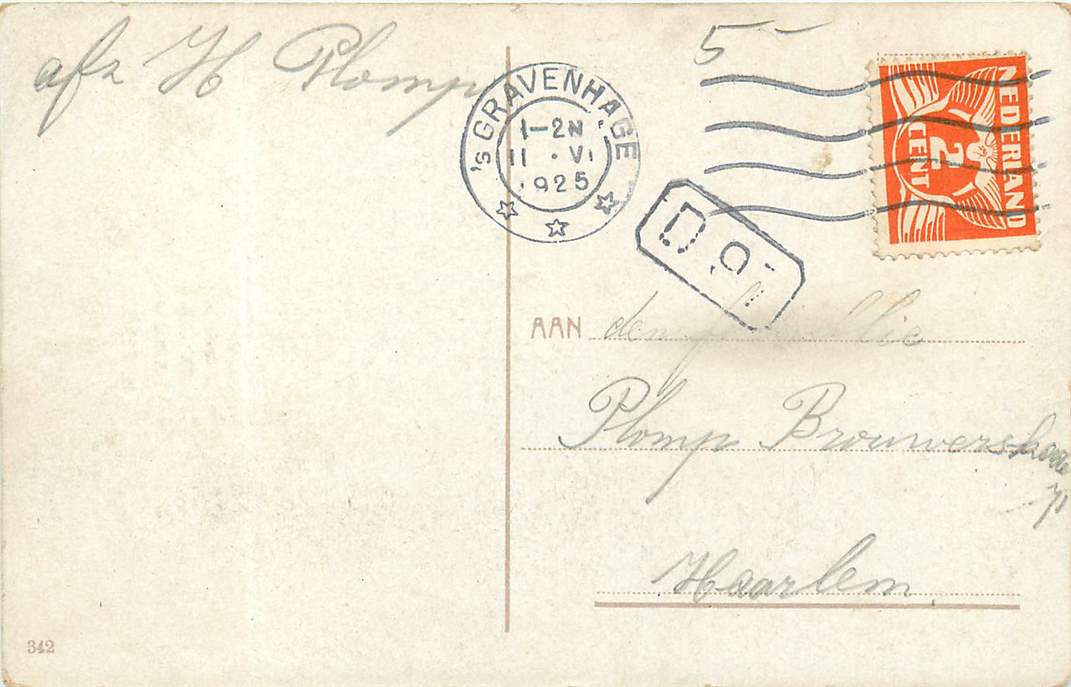 afz H Plomp
5-
'S GRAVENHAGE
1-2N
11 . VI
1925
NEDERLAND
2
CENT
D 9
AAN de
Plomp Brouwerskade
Haarlem
342